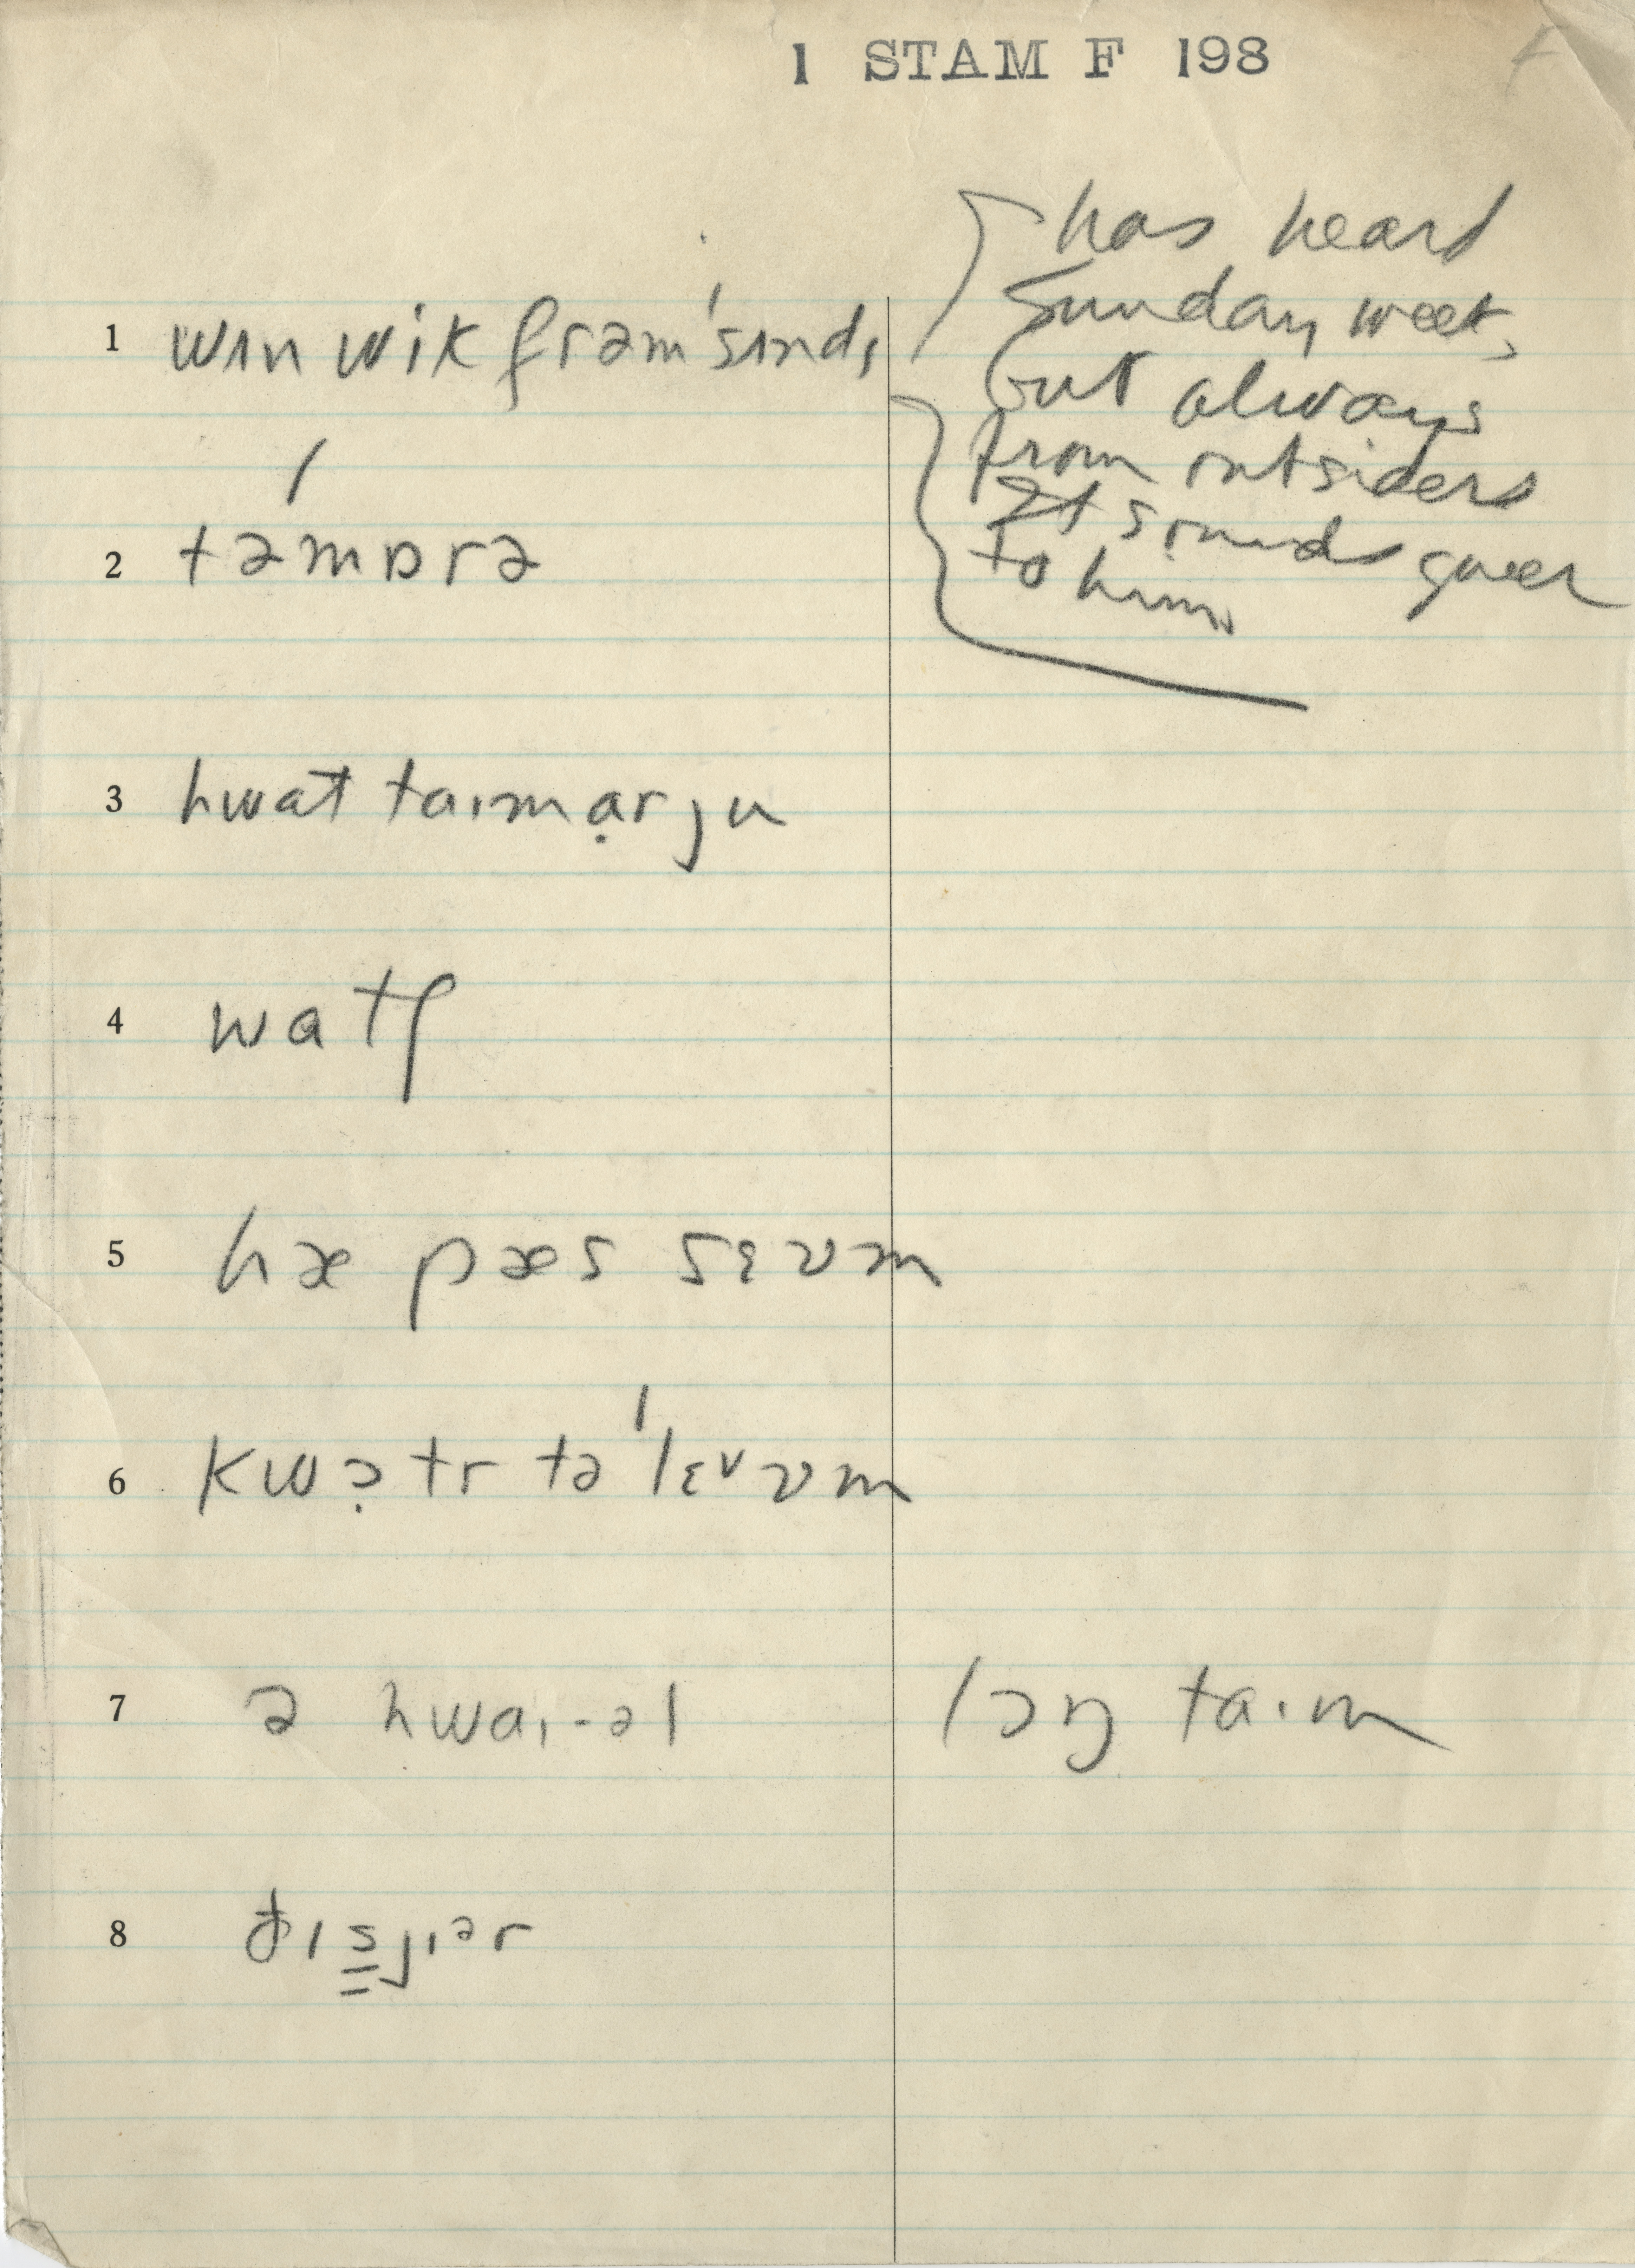 1 STAM F 198
has heard
Sunday week,
but always
from outsiders
It sounds queer
to him.
1 wɪn wik frəm ˈsɪndɪ
2 təmɒrə
3 hwat taɪm ạr ju
4 watʃ
5 hæ pæs sɛvm
6 kwɔ̣tr tə ˈlɛᵛvm
7 ə hwaɪ-əl lɔŋ taɪm
8 ðɪs̳jɪᵊr